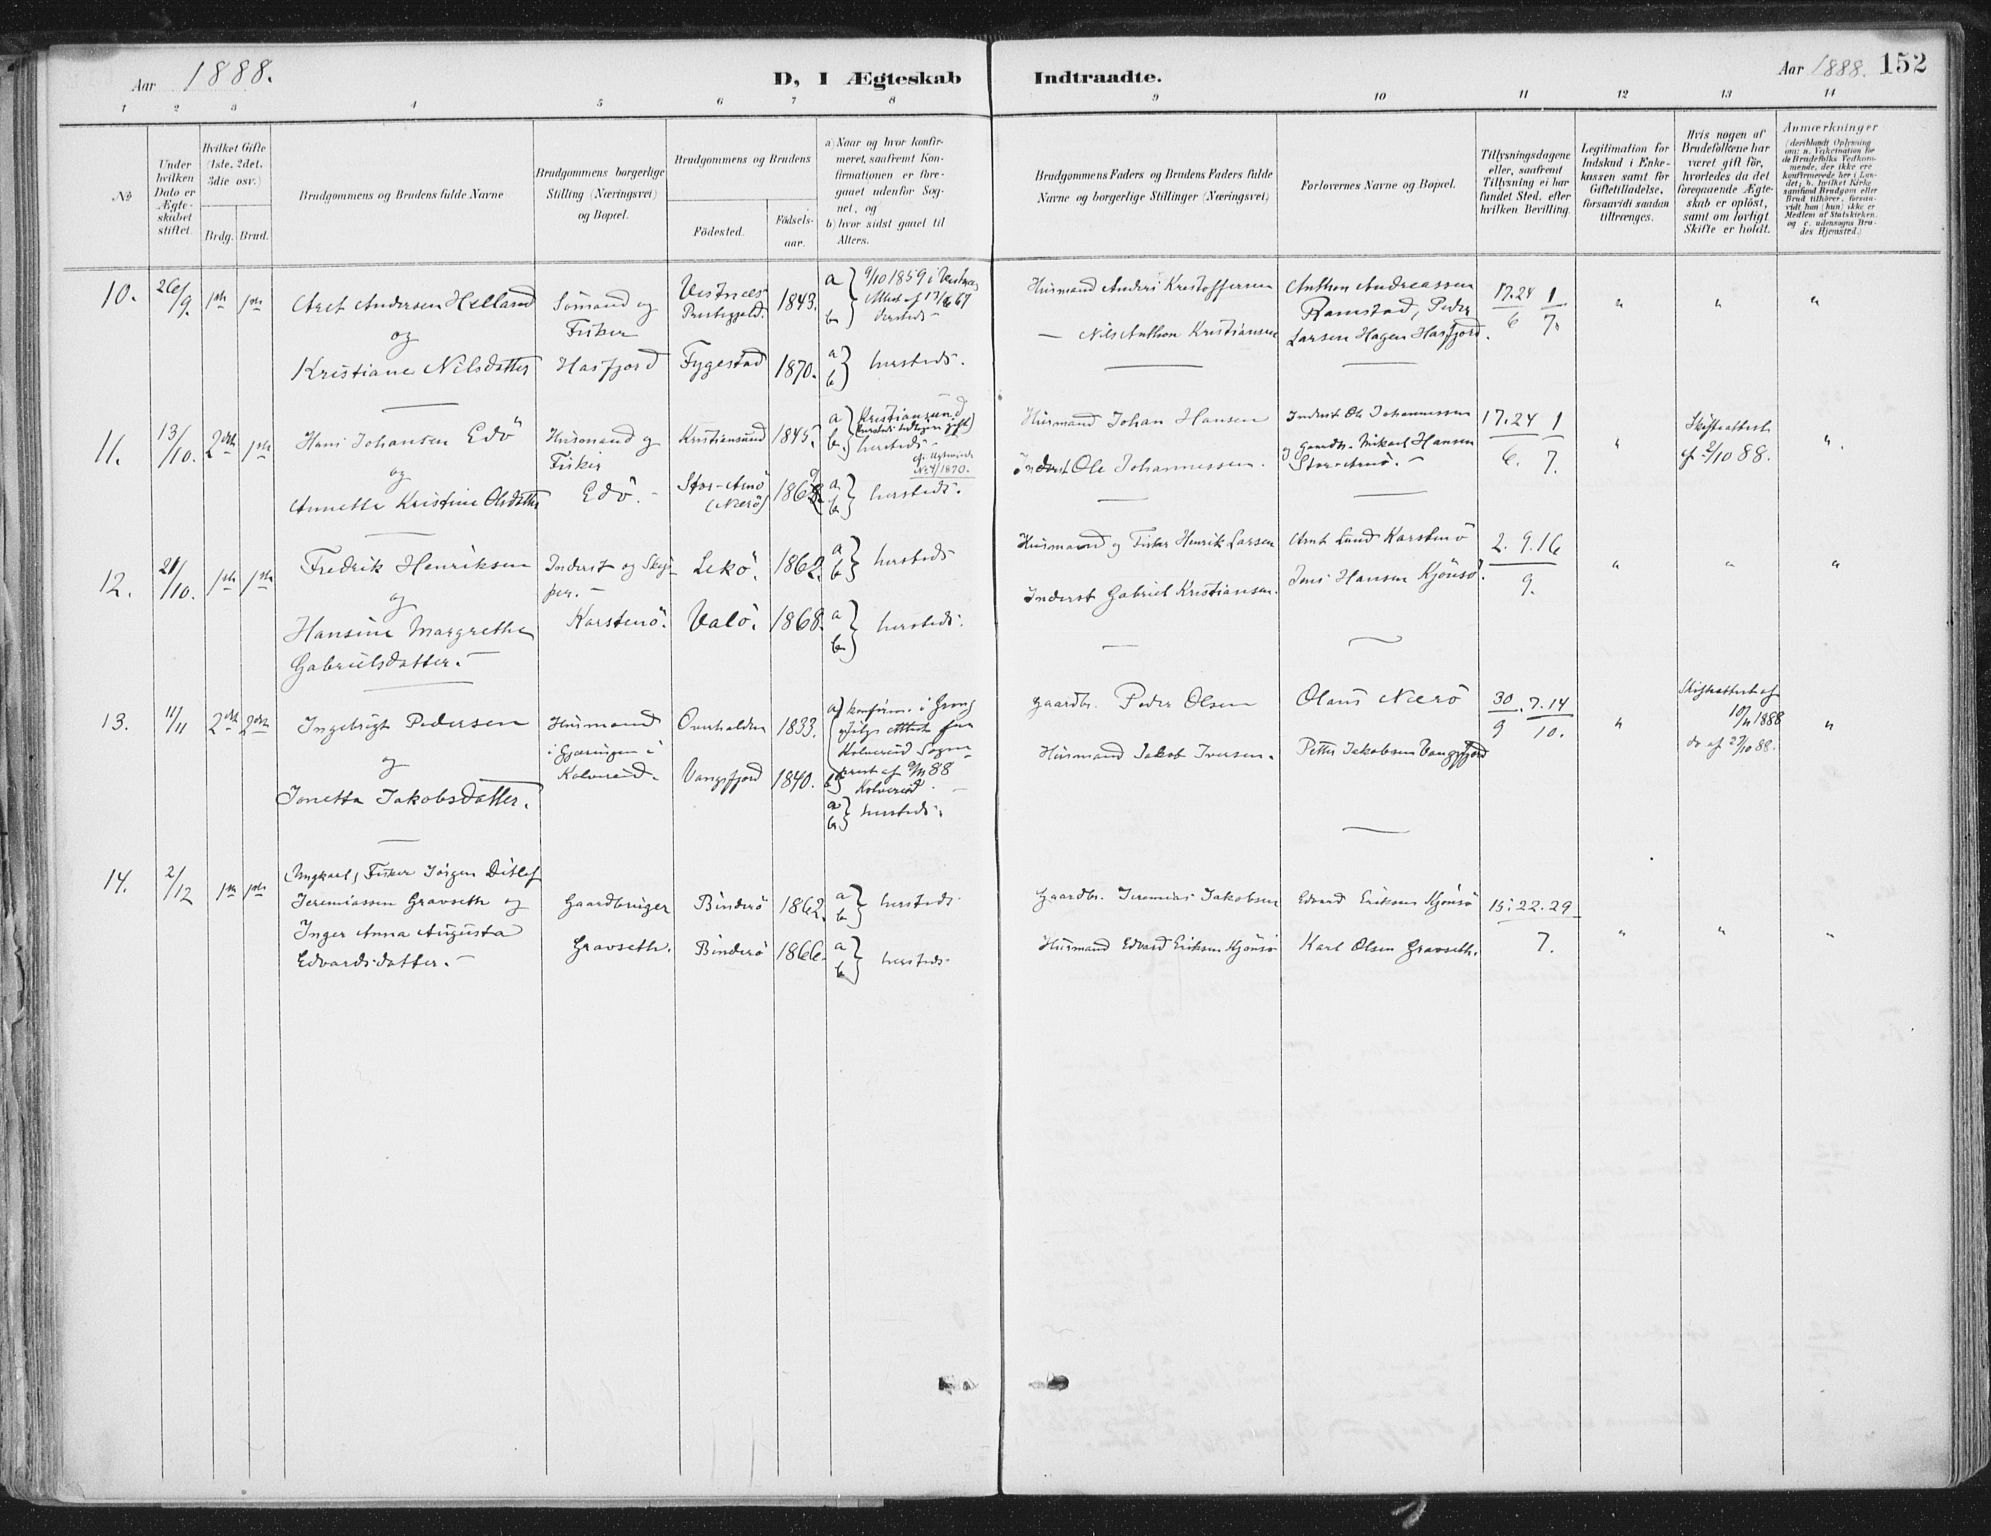 Aar 1888.
D, I Ægteskab Indtraadte.
Aar 1888. 152
1 2 3 4 5 6 7 8 9 10 11 12 13 14
No
Under hvilken Dato er Ægteskabet stiftet.
Hvilket Gifte (1ste, 2det, 3die osv.)
Brdg. Brud.
Brudgommens og Brudens fulde Navne
Brudgommens borgerlige Stilling (Næringsvei) og Bopæl.
Brudgommens og Brudens
Födested.
Födselsaar.
a) Naar og hvor konfirmeret, saafremt Konfirmationen er foregaaet udenfor Sognet, og
b) hvor sidst gaaet til Alters.
Brudgommens Faders og Brudens Faders fulde Navne og borgerlige Stillinger (Næringsvei)
Forlovernes Navne og Bopæl.
Tillysningsdagene eller, saafremt Tillysning ei har fundet Sted, efter hvilken Bevilling.
Legitimation for Indskud i Enkekassen samt for Giftetilladelse, forsaavidt saadan tiltrænges.
Hvis nogen af Brudefolkene har været gift för, hvorledes da det foregaaende Ægteskab er oplöst, samt om lovligt Skifte er holdt.
Anmærkninger (deriblandt Oplysning om: a. Vakcination for de Brudefolks Vedkommende, der ikke ere konfirmerede her i Landet; b. hvilket Kirkesamfund Brudgom eller Brud tilhörer, forsaavidt han (hun) ikke er Medlem af Statskirken, og c. udensogns Brudes Hjemsted.)
10. 26/9. 1ste 1ste
Aret Andersen Helland
og
Kristiane Nilsdatter
Sömand og
Fisker
Hasfjord
Vestnes
Prestegjeld.
1843.
Fygestad 1870.
a 9/10 1859 i Vestnes
b hersteds
a b hersteds.
Husmand Anders Kristoffersen
— Nils Anthon Kristiansen
Anthon Andreassen
Ramstad, Peder
Larsen Hagen Hasfjord.
17.24/6 1/7.
" " "
11. 13/10. 2det 1ste
Hans Johansen Edö
og
Annette Kristine Olsdatter
Husmand og
Fisker
Edö.
Kristiansund 1845.
Stor-Arnö
(Nærö)
a Kristiansund
b hersteds
No 4/1870.
a b hersteds.
Husmand Johan Hansen
Inderst Ole Johannessen.
Inderst Ole Johannessen
og Gaardbr. Mikael Hansen
17.24/6. 1/7.
"
Skifteattest
af 2/10 88.
"
12. 21/10. 1ste 1ste
Fredrik Henriksen
og
Hansine Margrethe
Gabrielsdatter.
Inderst og Skipper.
Karstenö.
Lekö. 1862.
Valö. 1868.
a b hersteds
a b hersteds.
Husmand og Fisker Henrik Larsen
Inderst Gabriel Kristiansen.
Arnt Lund Karstenö
Jens Hansen Kjönsö.
2. 9. 16
9.
" " "
13. 11/11 2det 2det
Ingebrigt Pedersen
og
Jonetta Jakobsdatter.
Husmand
i Gjæringen i
Kolvereid.
Overhalden 1833.
Vangsfjord 1840.
a konfirm. i Grong
ifölge Attest fra
Kolvereid Sogneprest af 9/11 88
b Kolvereid
a b hersteds.
Gaardbr. Peder Olsen
Husmand Jakob Iversen.
Olaus Nærö
Petter Jakobsen Vangsfjord
30/9. 7.14/10.
"
Skifteattest af
10/11 1888
do af 27/10 88.
"
14. 2/12 1ste 1ste
Ungkarl, Fisker Jörgen Ditlef
Jeremiassen Gravseth og
Inger Anna Augusta
Edvardsdatter.
Gaardbruger
Gravseth.
Binderö 1862.
Binderö 1866.
a b hersteds.
a b hersteds.
Gaardbr. Jeremias Jakobsen
Husmand Edvard Eriksen Kjönsö
Edvard Eriksen Kjönsö
Karl Olsen Gravseth.
15. 22. 29
7.
" " "